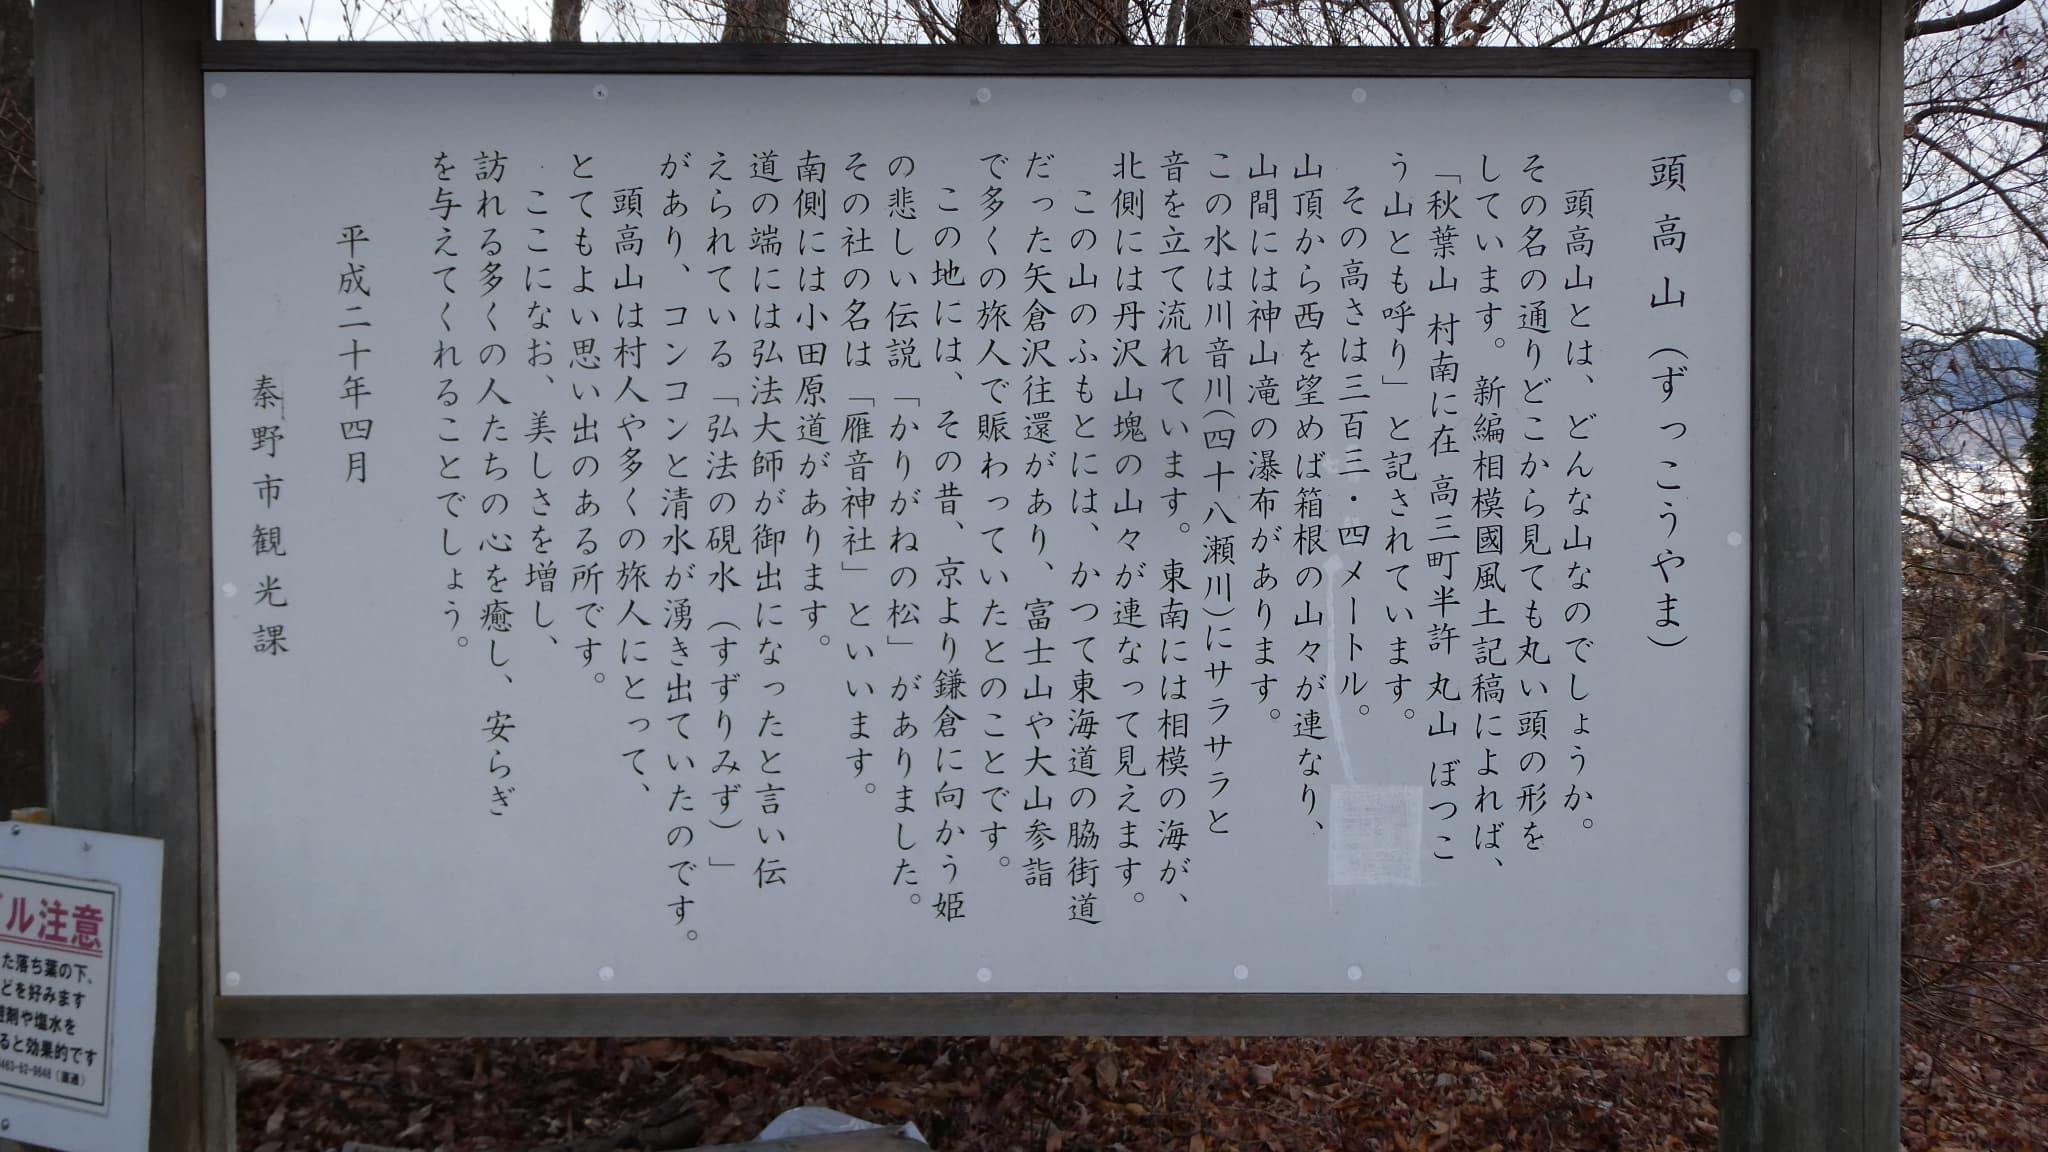 頭高山（ずっこうやま）
頭高山とは、どんな山なのでしょうか。
その名の通りどこから見ても丸い頭の形を
しています。新編相模國風土記稿によれば、
「秋葉山 村南に在 高三町半許 丸山 ぼつこ
う山とも呼り」と記されています。
その高さは三百三・四メートル。
山頂から西を望めば箱根の山々が連なり、
山間には神山滝の瀑布があります。
この水は川音川（四十八瀬川）にサラサラと
音を立て流れています。東南には相模の海が、
北側には丹沢山塊の山々が連なって見えます。
この山のふもとには、かつて東海道の脇街道
だった矢倉沢往還があり、富士山や大山参詣
で多くの旅人で賑わっていたとのことです。
この地には、その昔、京より鎌倉に向かう姫
の悲しい伝説「かりがねの松」がありました。
その社の名は「雁音神社」といいます。
南側には小田原道があります。
道の端には弘法大師が御出になったと言い伝
えられている「弘法の硯水（すずりみず）」
があり、コンコンと清水が湧き出ていたのです。
頭高山は村人や多くの旅人にとって、
とてもよい思い出のある所です。
ここになお、美しさを増し、
訪れる多くの人たちの心を癒し、安らぎ
を与えてくれることでしょう。
平成二十年四月
秦野市観光課
ル注意
た落ち葉の下、
どを好みます
剤や塩水を
ると効果的です